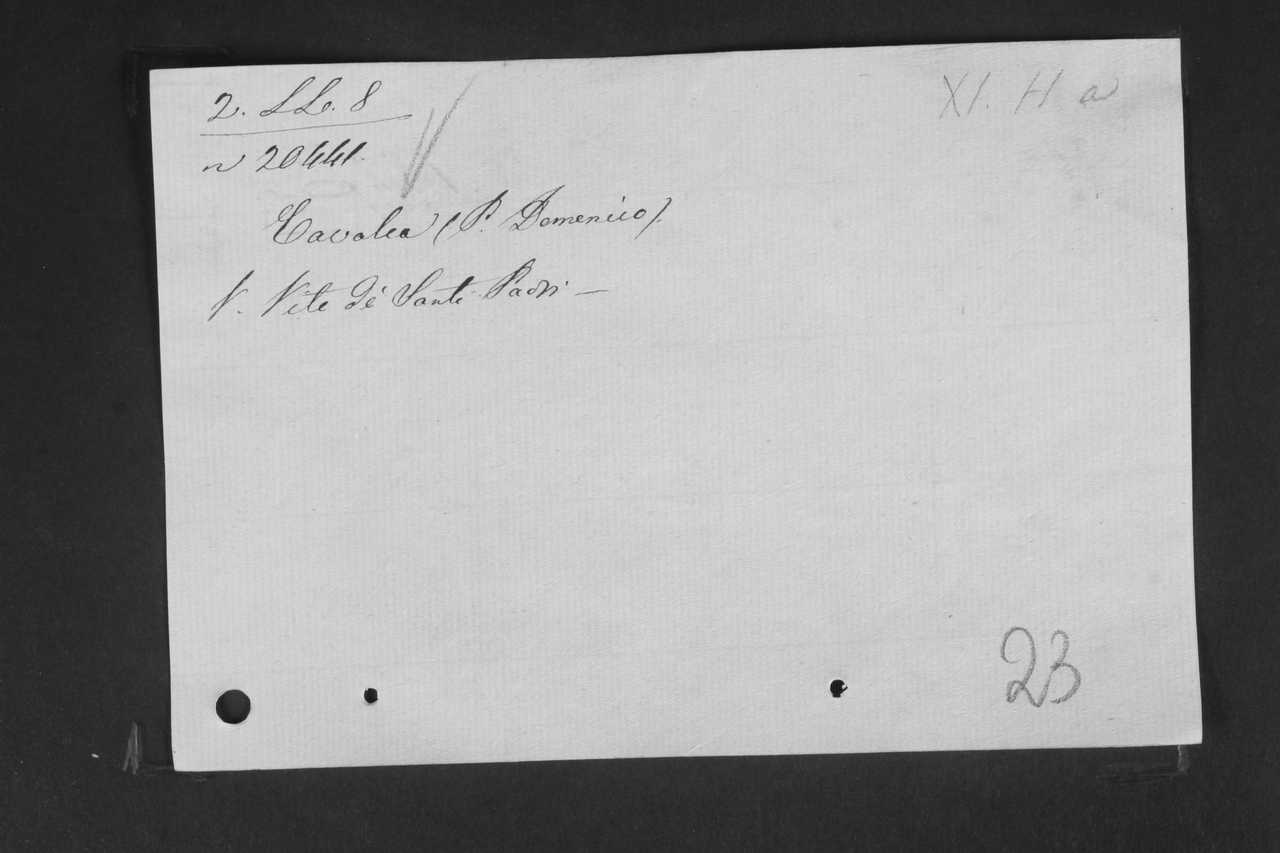 2. LL. 8
XI. H a
n 20441.
Cavalca (P. Domenico).
V. Vite dé Santi Padri —
23